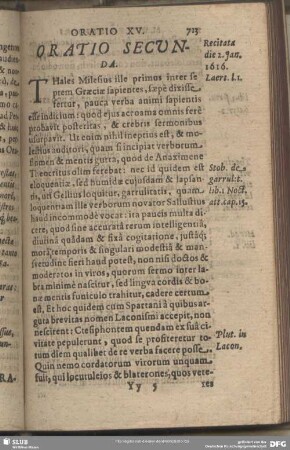 ORATIO XV. 713
ORATIO SECUN-
DA.
Recitata
die 2. Jan.
1616.
Laert. l.1.
THales Milesius ille primus inter se
ptem Græciæ sapientes, sæpè dixisse
fertur, pauca verba animi sapientis
esse indicium: quod ejus acroama omni ferè
probavit posteritas, & crebris sermonibus
usurpavit. Ut enim nihil ineptius est, & mo-
lestius auditori, quam si incipiat verborum
flumen & mentis gutta, quod de Anaximene
Theocritus olim ferebat: nec id quidem est
eloquentiæ, sed humidæ cujusdam & lapsan-
tis, ut Gellius loquitur, garrulitatis, quam
loquentiam ille verborum novator Sallustius
haud incommodè vocat: ita paucis multa di-
cere, quod sine accuratâ rerum intelligentiâ,
diutinâ quâdam & fixâ cogitatione, justâq;
morâ temporis & singulari modestiâ & man-
svetudine fieri haud potest, non nisi doctos &
moderatos in viros, quorum sermo inter la-
bra minimè nascitur, sed lingva cordis & bo-
næ mentis funiculo trahitur, cadere certum
est. Et hoc quidem cum Spartani à quibus ar-
guta brevitas nomen Laconismi accepit, non
nescirent: Ctesiphontem quendam ex suâ ci-
vitate pepulerunt, quod se profiteretur to-
tum diem qualibet de re verba facere posse.
Quin nemo cordatorum virorum unquam
fuit, qui locutuleios & blaterones, quos vete-
Stob. de
garrulit.
lib. 1. Noct.
att cap. 15.
Plut. in
Lacon.
Yy 5 res